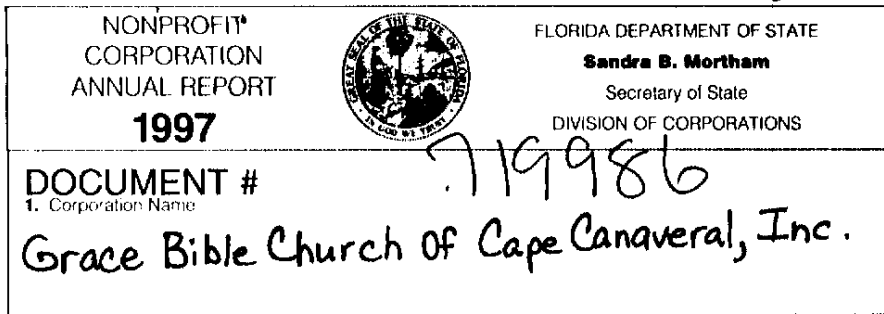 NONPROFIT
CORPORATION
ANNUAL REPORT
1997
GREAT SEAL OF THE STATE OF FLORIDA
IN GOD WE TRUST
FLORIDA DEPARTMENT OF STATE
Sandra B. Mortham
Secretary of State
DIVISION OF CORPORATIONS
DOCUMENT # 719986
1. Corporation Name
Grace Bible Church Of Cape Canaveral, Inc.